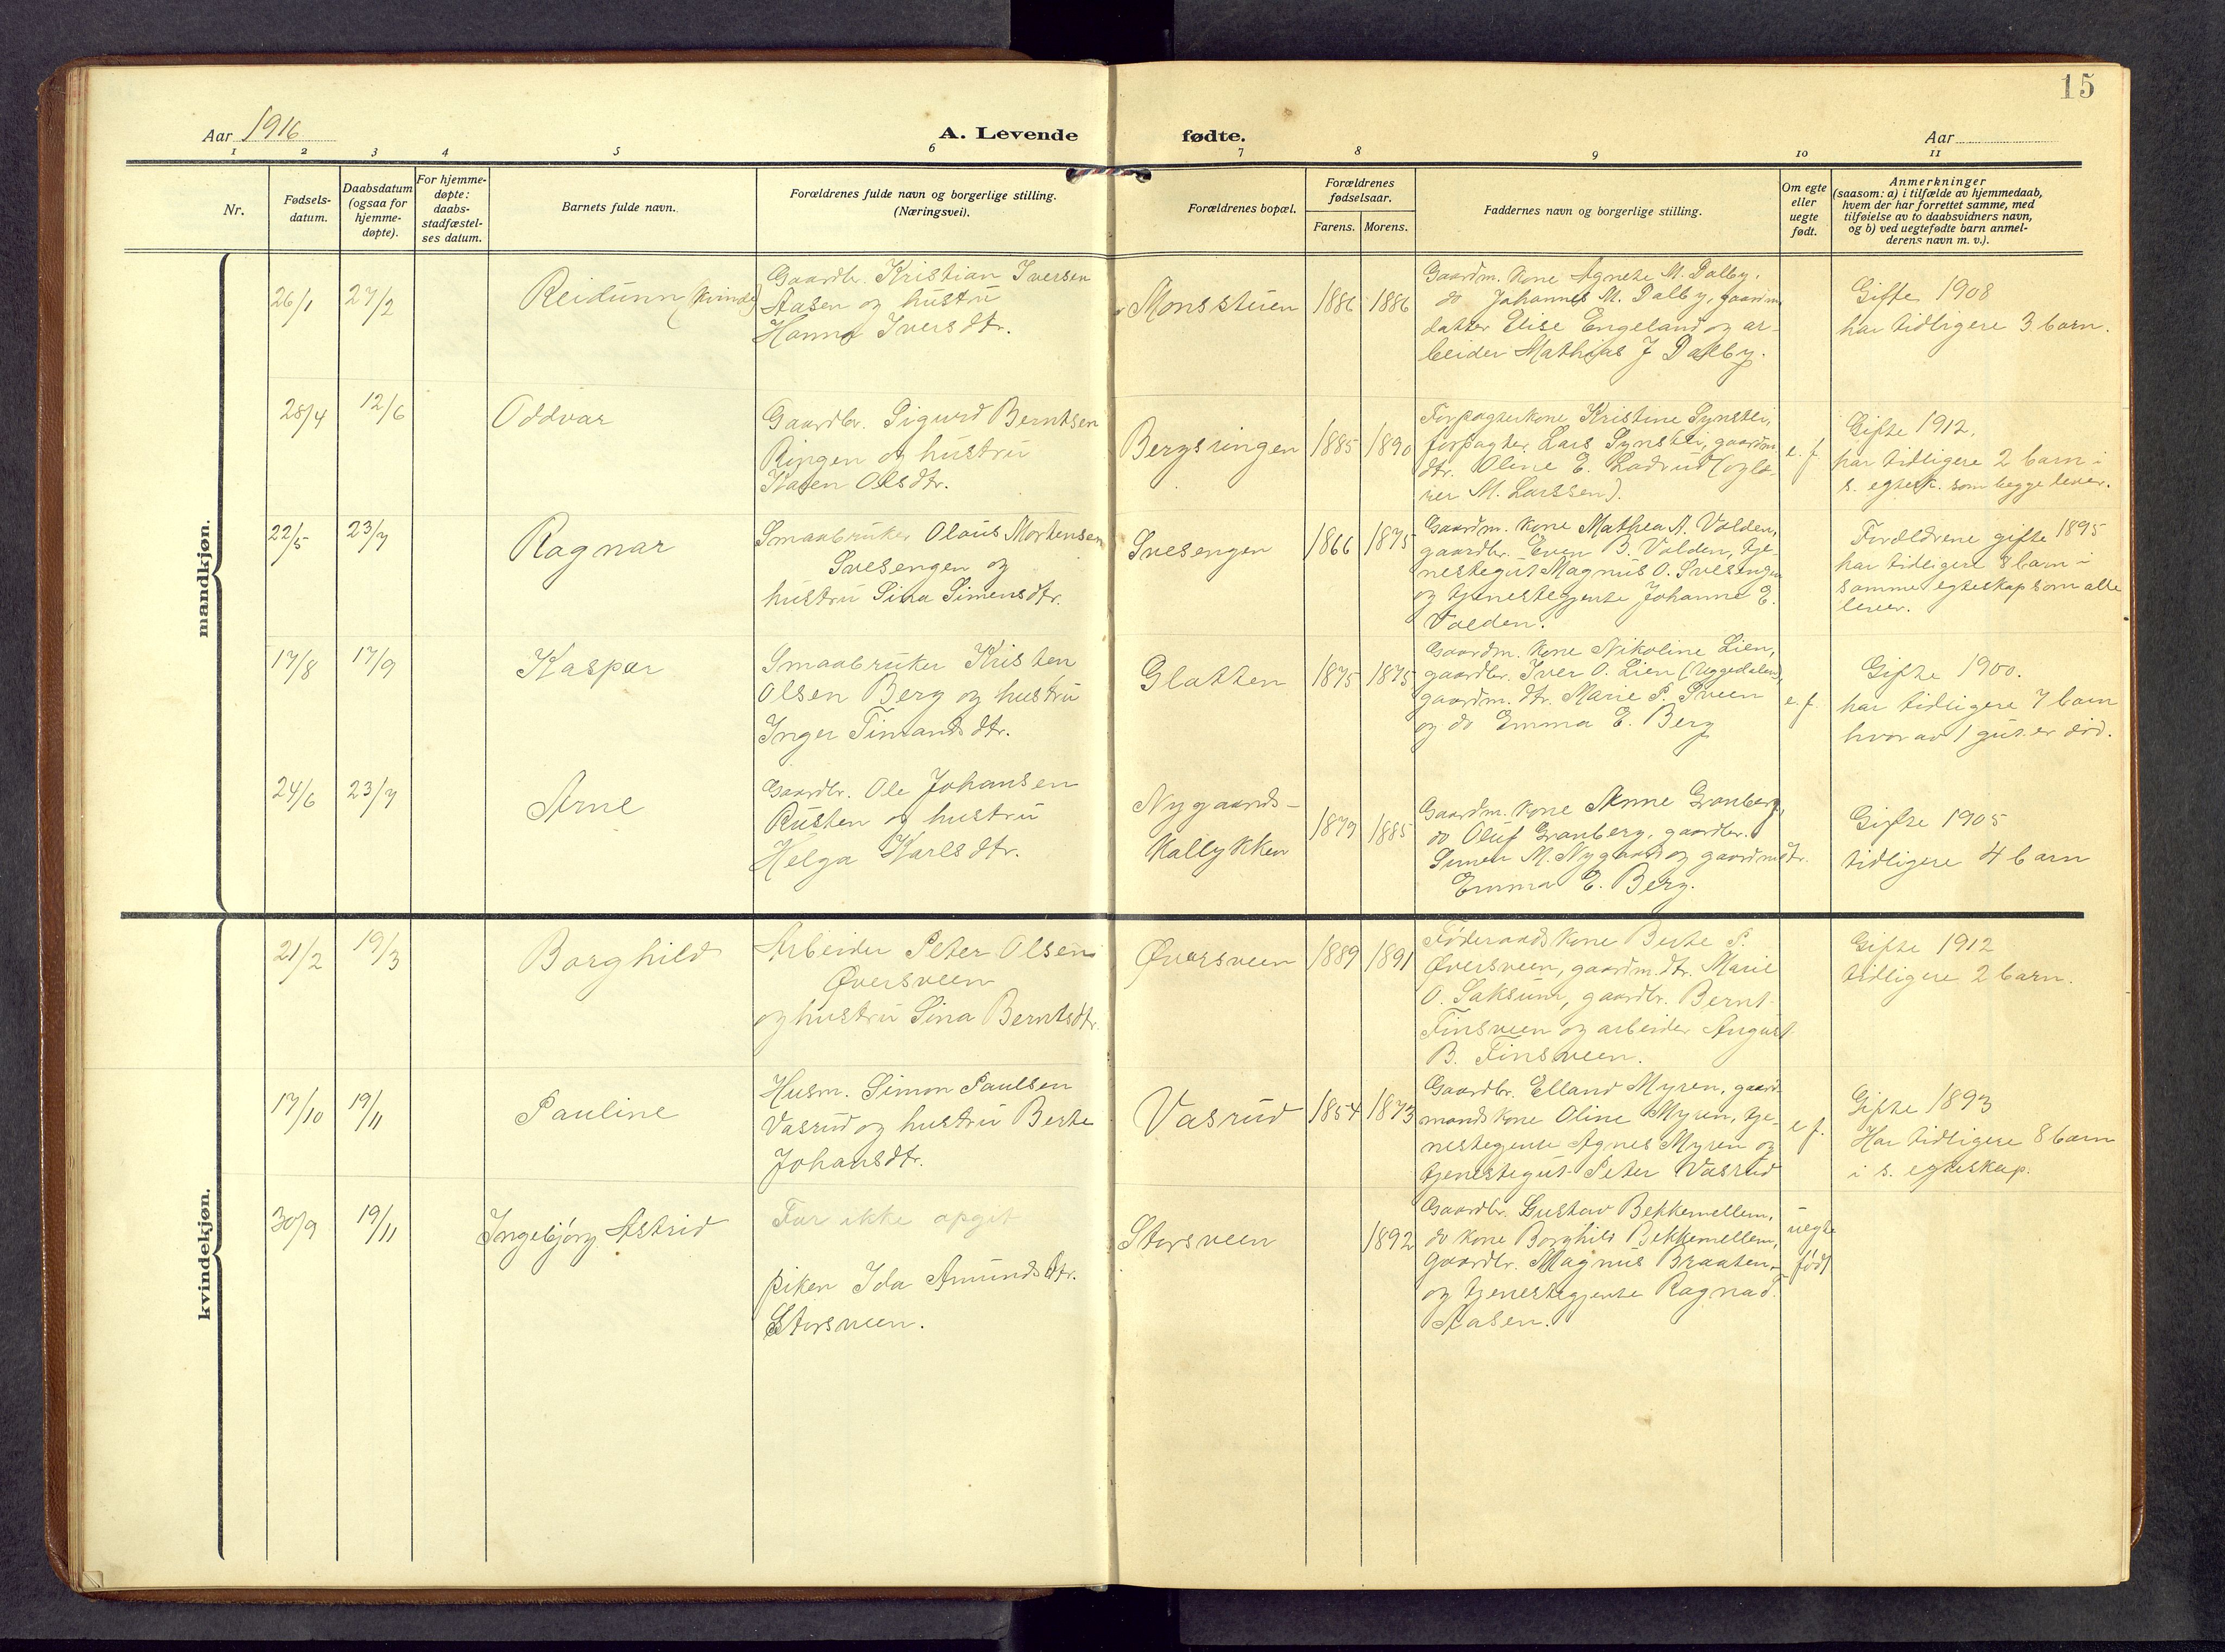 15
Aar 1916
A. Levende fødte.
Aar
1 2 3 4 5 6 7 8 9 10 11
Nr.
Fødsels-
datum.
Daabsdatum
(ogsaa for
hjemme-
døpte).
For hjemme-
døpte:
daabs-
stadfæstel-
ses datum.
Barnets fulde navn.
Forældrenes fulde navn og borgerlige stilling.
(Næringsvei).
Forældrenes bopæl.
Forældrenes
fødselsaar.
Farens. Morens.
Faddernes navn og borgerlige stilling.
Om egte
eller
uegte
født.
Anmerkninger
(saasom: a) i tilfælde av hjemmedaab,
hvem der har forrettet samme, med
tilføielse av to daabsvidners navn,
og b) ved uegtefødte barn anmel-
derens navn m. v.).
mandkjøn.
26/1 27/2
Reidunn (kvinde)
Gaardbr. Kristian Iversen
Aasen og hustru
Hanna Iversdtr.
Monsstuen
1886 1886
Gaardm. kone Agnete M. Dalby,
do Johannes M. Dalby, gaardm
datter Elise Engeland og ar-
beider Mathias J Dalby.
Gifte 1908
har tidligere 3 barn.
28/4 12/6
Oddvar
Gaardbr. Sigurd Berntsen
Ringen og hustru
Karen Olsdtr.
Bergsringen
1885 1890
Forpagterkone Kristine Synstli,
forpagter Lars Synstli, gaardm
dtr. Oline E. Ladrud (og læ-
rer M. Larssen).
e. f
Gifte 1912.
har tidligere 2 barn i
s. egtesk. som begge lever.
22/5 23/7
Ragnar
Smaabruker Olaus Mortensen
Svesengen og
hustru Sina Simensdtr.
Svesengen
1866 1875
Gaardm. kone Mathea A. Volden,
gaardbr. Even B. Volden, tje-
nestegut Magnus O. Svesengen
og tjenestegjente Johanne E.
Volden.
Forældrene gifte 1895
har tidligere 8 barn i
samme egteskap som alle
lever.
17/8 17/9
Kaspar
Smaabruker Kristen
Olsen Berg og hustru
Inger Timandsdtr.
Glatten
1875 1875
Gaardm. kone Nikoline Lien,
gaardbr. Iver O. Lien (Uggedalen),
gaardm. dtr. Marie P. Sveen
og do Emma E. Berg
e. f.
Gifte 1900.
har tidligere 7 barn
hvorav 1 gut er død.
24/6 23/7
Arne
Gaardbr. Ole Johansen
Rusten og hustru
Helga Karlsdtr.
Nygaards-
kallykken
1879 1885
Gaardm. kone Anne Granberg,
do Oluf Granberg, gaardbr.
Simen M. Nygaard og gaardmdtr.
Emma E. Berg.
Gifte 1905
tidligere 4 barn
kvindekjøn.
21/2 19/3
Borghild
Arbeider Peter Olsen
Øversveen
og hustru Sina Berntsdtr.
Øversveen
1889 1891
Føderaadskone Berte P.
Øversveen, gaardm. dtr. Marie
O. Saksum, gaardbr. Bernt
Finsveen og arbeider August
B. Finsveen.
Gifte 1912
tidligere 2 barn.
17/10 19/11
Pauline
Husm. Simon Paulsen
Vasrud og hustru Berte
Johansdtr.
Vasrud
1854 1873
Gaardbr. Elland Myren, gaard-
mandskone Oline Myren, tje-
nestegjente Agnes Myren og
tjenestegut Peter Vasrud
e f.
Gifte 1893
Har tidligere 8 barn
i s. egteskap.
30/9 19/11
Ingebjørg Astrid
Far ikke opgit
piken Ida Amundsdtr.
Storsveen.
Storsveen
1892
Gaardbr. Gustav Bekkemellem,
do kone Borghild Bekkemellem,
gaardbr. Magnus Braaten
og tjenestegjente Ragna
Aasen.
uegte
født